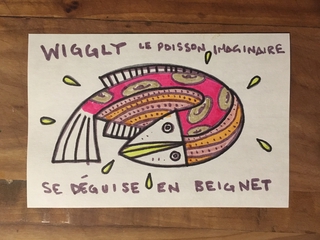 WIGGLY LE POISSON IMAGINAIRE
SE DÉGUISE EN BEIGNET